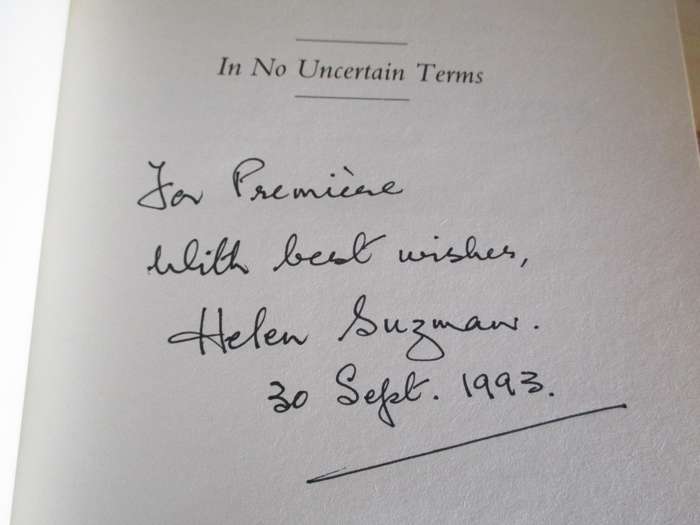 In No Uncertain Terms
For Première
With best wishes,
Helen Suzman.
30 Sept. 1993.